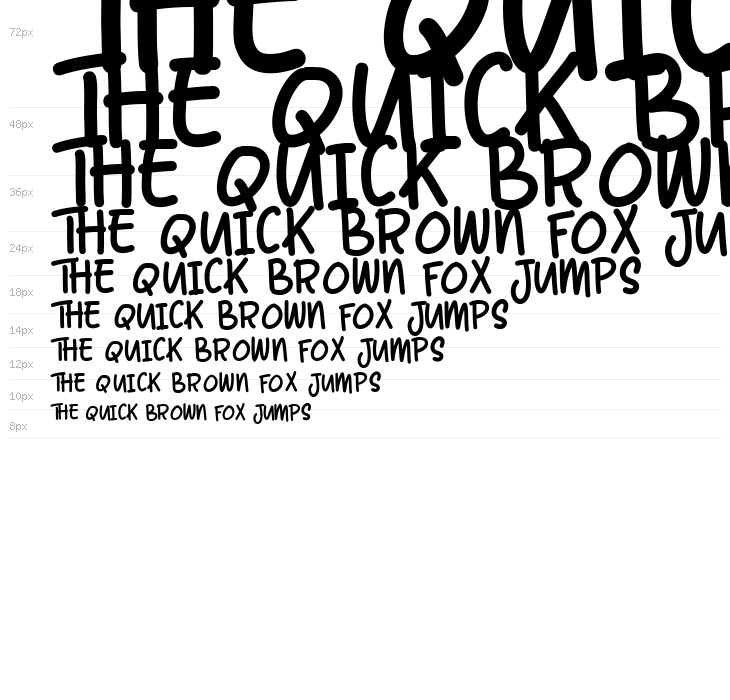 72px THE QUIC
48px THE QUICK BR
36px THE QUICK BROWN
24px THE QUICK BROWN FOX JU
18px THE QUICK BROWN FOX JUMPS
14px THE QUICK BROWN FOX JUMPS
12px THE QUICK BROWN FOX JUMPS
10px THE QUICK BROWN FOX JUMPS
8px THE QUICK BROWN FOX JUMPS